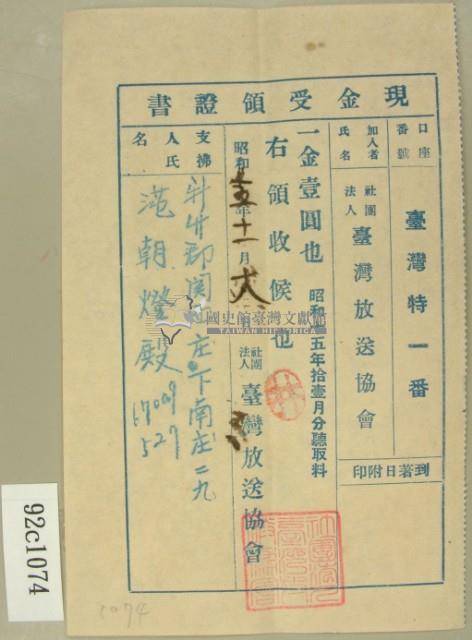 現金受領證書
口座番號
臺灣特一番
加入者氏名
社團法人 臺灣放送協會
到著日附印
一金壹圓也 昭和十五年拾壹月分聽取料
右領收候也
昭和十五年十一月
社團法人 臺灣放送協會
支拂人氏名
新竹郡関西庄下南庄二九
范朝燈殿
527
國史館臺灣文獻館
TAIWAN HISTORICA
92c1074
1074